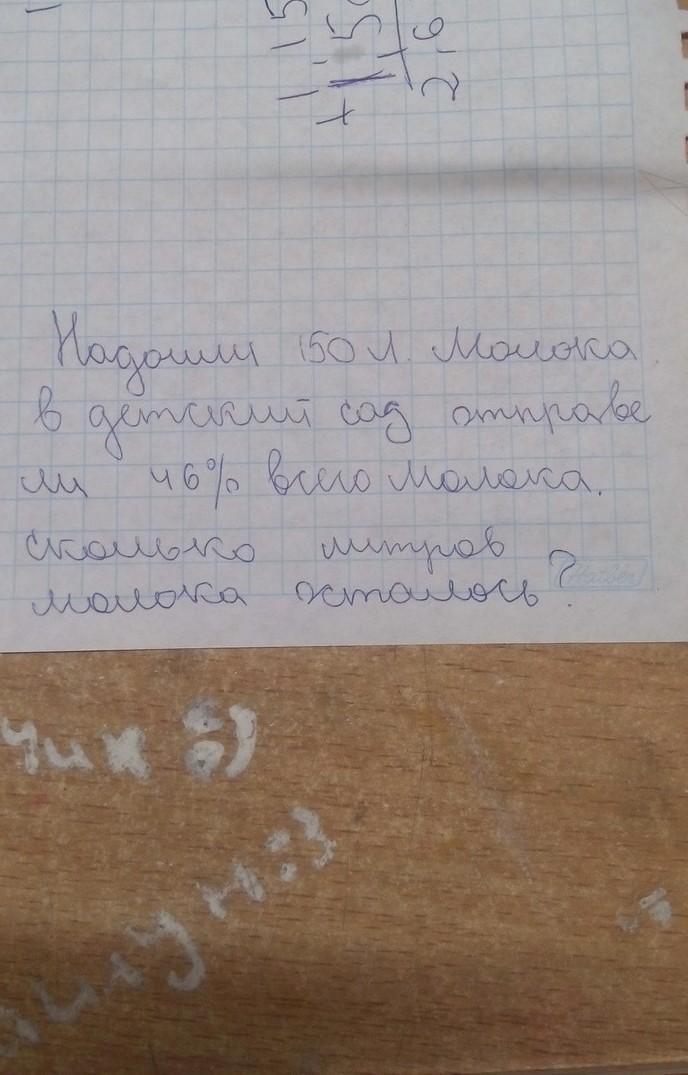 Надоили 150 л. Молока
в детский сад отправе
ли 46% всего молока.
сколько литров
молока осталось?
Hatber
чик